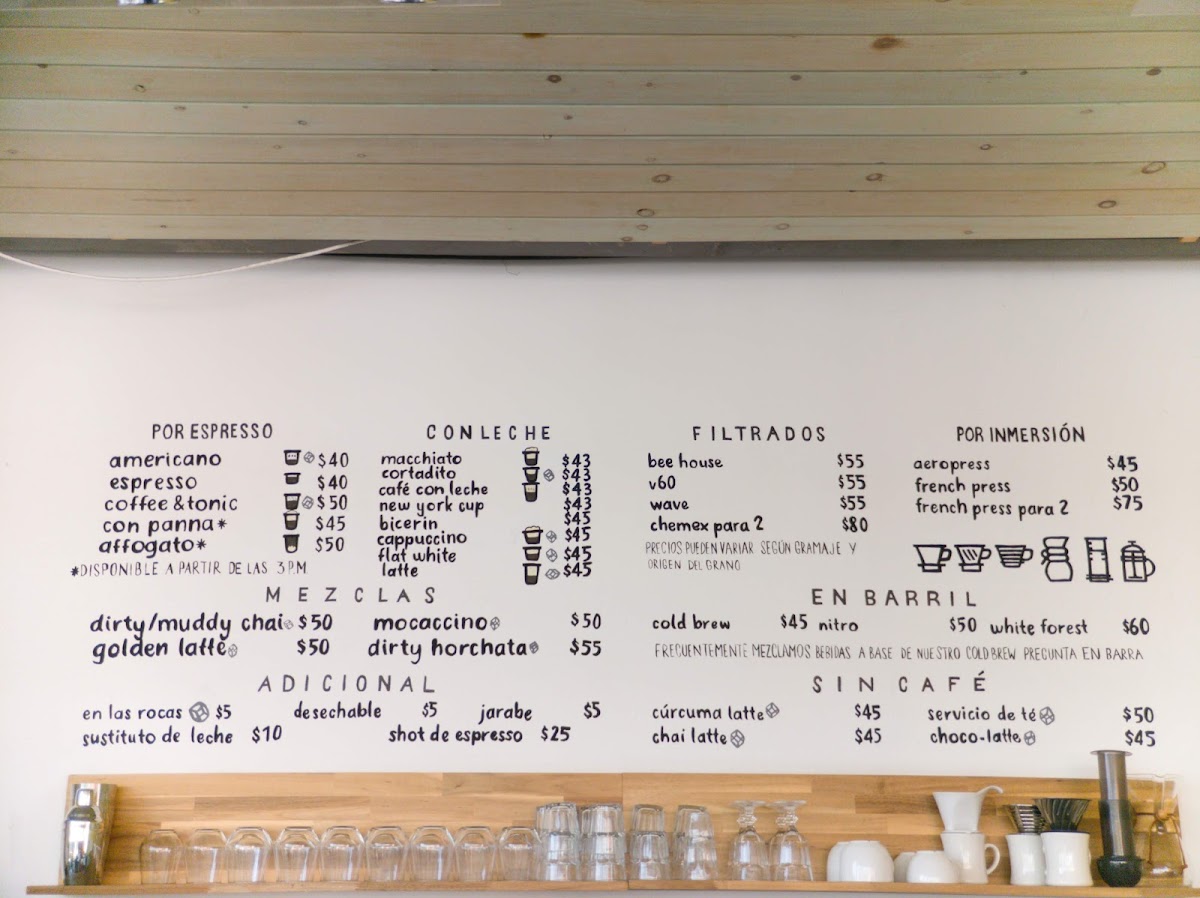 POR ESPRESSO
americano $40
espresso $40
coffee & tonic $50
con panna* $45
affogato* $50
*DISPONIBLE A PARTIR DE LAS 3 PM
CON LECHE
macchiato $43
cortadito $43
café con leche $43
new york cup $43
bicerin $45
cappuccino $45
flat white $45
latte $45
FILTRADOS
bee house $55
v60 $55
wave $55
chemex para 2 $80
PRECIOS PUEDEN VARIAR SEGÚN GRAMAJE Y
ORIGEN DEL GRANO
POR INMERSIÓN
aeropress $45
french press $50
french press para 2 $75
MEZCLAS
dirty/muddy chai $50 mocaccino $50
golden latte $50 dirty horchata $55
EN BARRIL
cold brew $45 nitro $50 white forest $60
FRECUENTEMENTE MEZCLAMOS BEBIDAS A BASE DE NUESTRO COLD BREW PREGUNTA EN BARRA
ADICIONAL
en las rocas $5 desechable $5 jarabe $5
sustituto de leche $10 shot de espresso $25
SIN CAFÉ
cúrcuma latte $45 servicio de té $50
chai latte $45 choco-latte $45